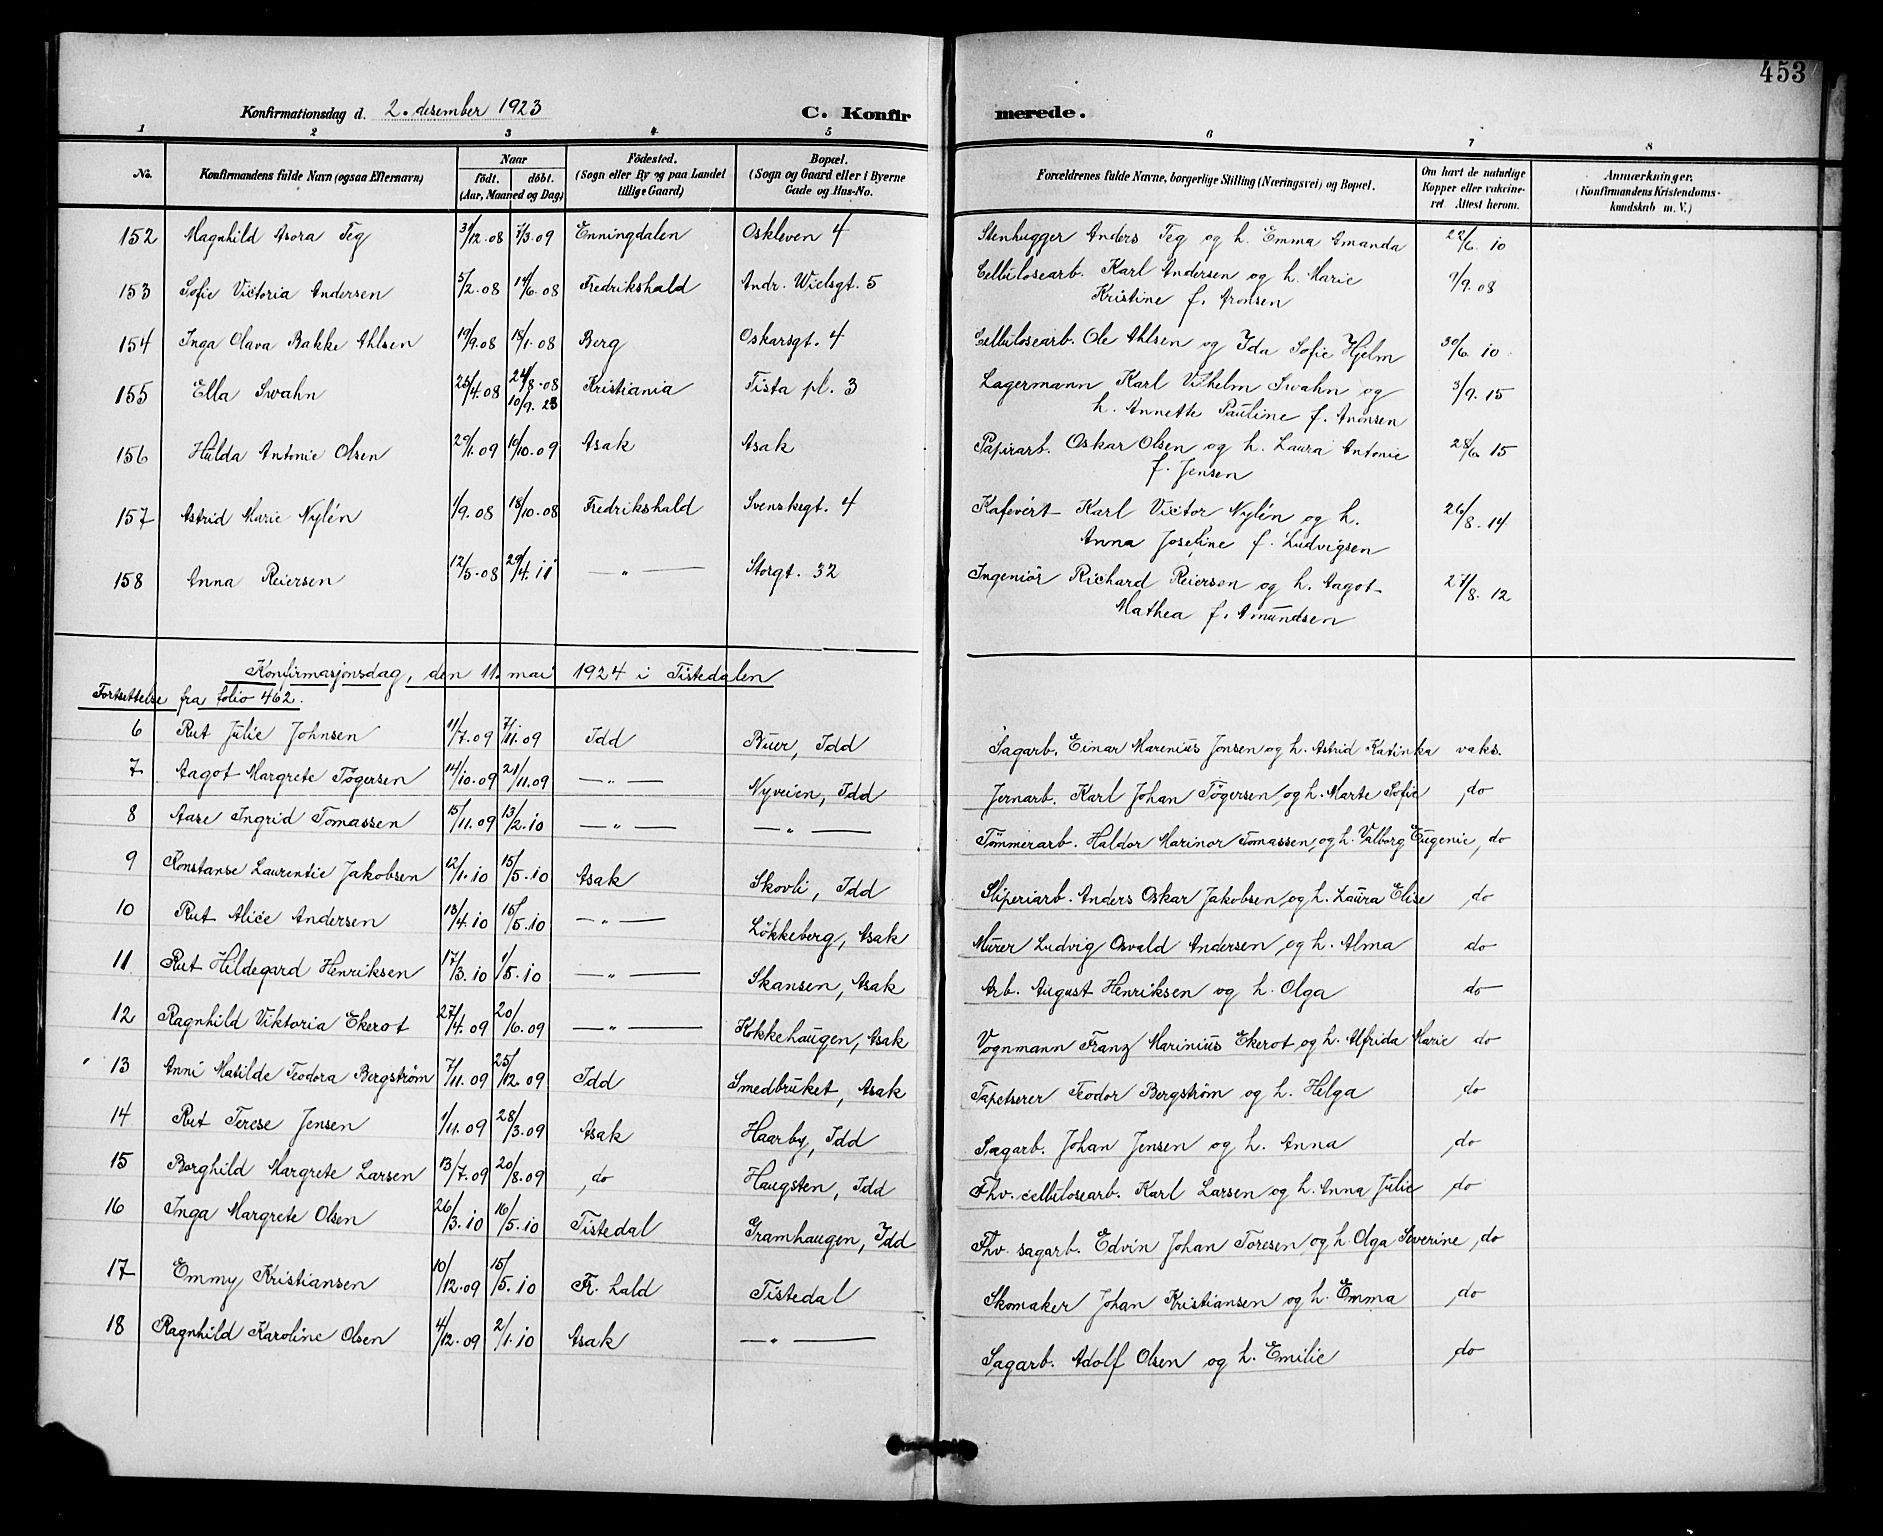 453
Konfirmationsdag d. 2. desember 1923 C. Konfirmerede.
1 2 3 4 5 6 7 8
No. Konfirmandens fulde Navn (ogsaa Efternavn) Naar födt. döbt. (Aar, Maaned og Dag) Födested. (Sogn eller By og paa Landet tillige Gaard) Bopæl. (Sogn og Gaard eller i Byerne Gade og Hus-No. Forældrenes fulde Navne, borgerlige Stilling (Næringsvei) og Bopæl. Om havt de naturlige Kopper eller vaccineret Attest herom. Anmærkninger, (Konfirmandens Kristendomskundskab m. V.)
152 Magnhild Asora Teg 31/12.08 7/3.09 Enningdalen Oskleven 4 Stenhugger Anders Teg og h. Emma Amanda 22/6. 10
153 Sofie Victoria Andersen 5/2.08 14/6.08 Fredrikshald Andr. Wielsgt. 5 Cellulosearb. Karl Andersen og h. Marie
Kristine f. Aronsen 9/9.08
154 Inga Olava Bakke Ahlsen 19/9.08 18/1.08 Berg Oskarsgt. 4 Cellulosearb. Ole Ahlsen og Ida Sofie Hjelm 30/6. 10
155 Ella Swahn 25/4.08 24/8.08 Kristiania Tista pl. 3 Lagermann Karl Vilhelm Swahn og 3/9. 15
10/9. 23 h. Annette Pauline f. Aronsen
156 Hulda Antonie Olsen 29/1.09 10/10.09 Asak Asak Papirarb. Oskar Olsen og h. Laura Antonie 28/6. 15
f. Jensen
157 Astrid Marie Nylén 1/9.08 18/10.08 Fredrikshald Svenskegt. 4 Kafévert Karl Victor Nylén og h. 26/8. 14
Anna Josefine f. Ludvigsen
158 Anna Reiersen 12/5.08 29/4.11 — " — Storgt. 32 Ingeniör Richard Reiersen og h. Aagot 27/8. 12
Mathea f. Amundsen
Konfirmasjonsdag, den 11. mai 1924 i Tistedalen
Fortsettelse fra folio 462.
6 Rut Julie Johnsen 11/7.09 7/11.09 Idd Buer, Idd Sagarb. Einar Marenius Jonsen og h. Astrid Katinka vaks.
7 Aagot Margrete Tøgersen 14/10.09 21/11.09 — " — Nyveien, Idd Jernarb. Karl Johan Tøgersen og h. Marte Sofie do
8 Aase Ingrid Tomassen 15/11.09 13/2.10 — " — — " — Tömmerarb. Haldor Marinor Tomassen og h. Valborg Eugenie, do
9 Konstanse Laurentie Jakobsen 12/1.10 15/5.10 Asak Skovli, Idd Sliperiarb. Anders Oskar Jakobsen og h. Laura Elise do
10 Rut Alice Andersen 13/4.10 15/5.10 — " — Lökkeberg, Asak Murer Ludvig Osvald Andersen og h. Alma do
11 Rut Hildegard Henriksen 17/3.10 1/5.10 — " — Skansen, Asak Arb. August Henriksen og h. Olga do
12 Ragnhild Viktoria Ekerot 27/4.09 20/6.09 — " — Kokkehaugen, Asak Vognmann Franz Marinius Ekerot og h. Alfrida Marie do
13 Anni Matilde Teodora Bergstrøm 7/11.09 25/12.09 Idd Smedbruket, Asak Tapetserer Teodor Bergstrøm og h. Helga do
14 Rut Terese Jensen 1/11.09 28/3.09 Asak Haarby, Idd Sagarb. Johan Jensen og h. Anna do
15 Borghild Margrete Larsen 13/7.09 20/8.09 do Haugsten, Idd Fhv. cellulosearb. Karl Larsen og h. Anna Julie do
16 Inga Margrete Olsen 26/3.10 16/5.10 Tistedal Gramhaugen, Idd Fhv. sagarb. Edvin Johan Toresen og h. Olga Severine, do
17 Emmy Kristiansen 10/12.09 15/5.10 Fr. hald Tistedal Skomaker Johan Kristiansen og h. Emma do
18 Ragnhild Karoline Olsen 4/12.09 2/1.10 Asak — " — Sagarb. Adolf Olsen og h. Emilie do